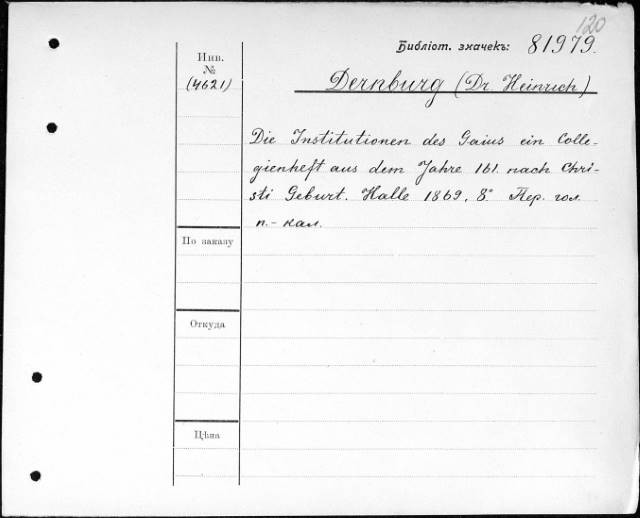 120
Библіот. значекъ: 81979.
Инв.
№
(4621)
Dernburg (Dr. Heinrich)
Die Institutionen des Gaius ein Colle-
gienheft aus dem Jahre 161. nach Chri-
sti Geburt. Halle 1869. 8° Пер. гол.
п.-кал.
По заказу
Откуда
Цѣна